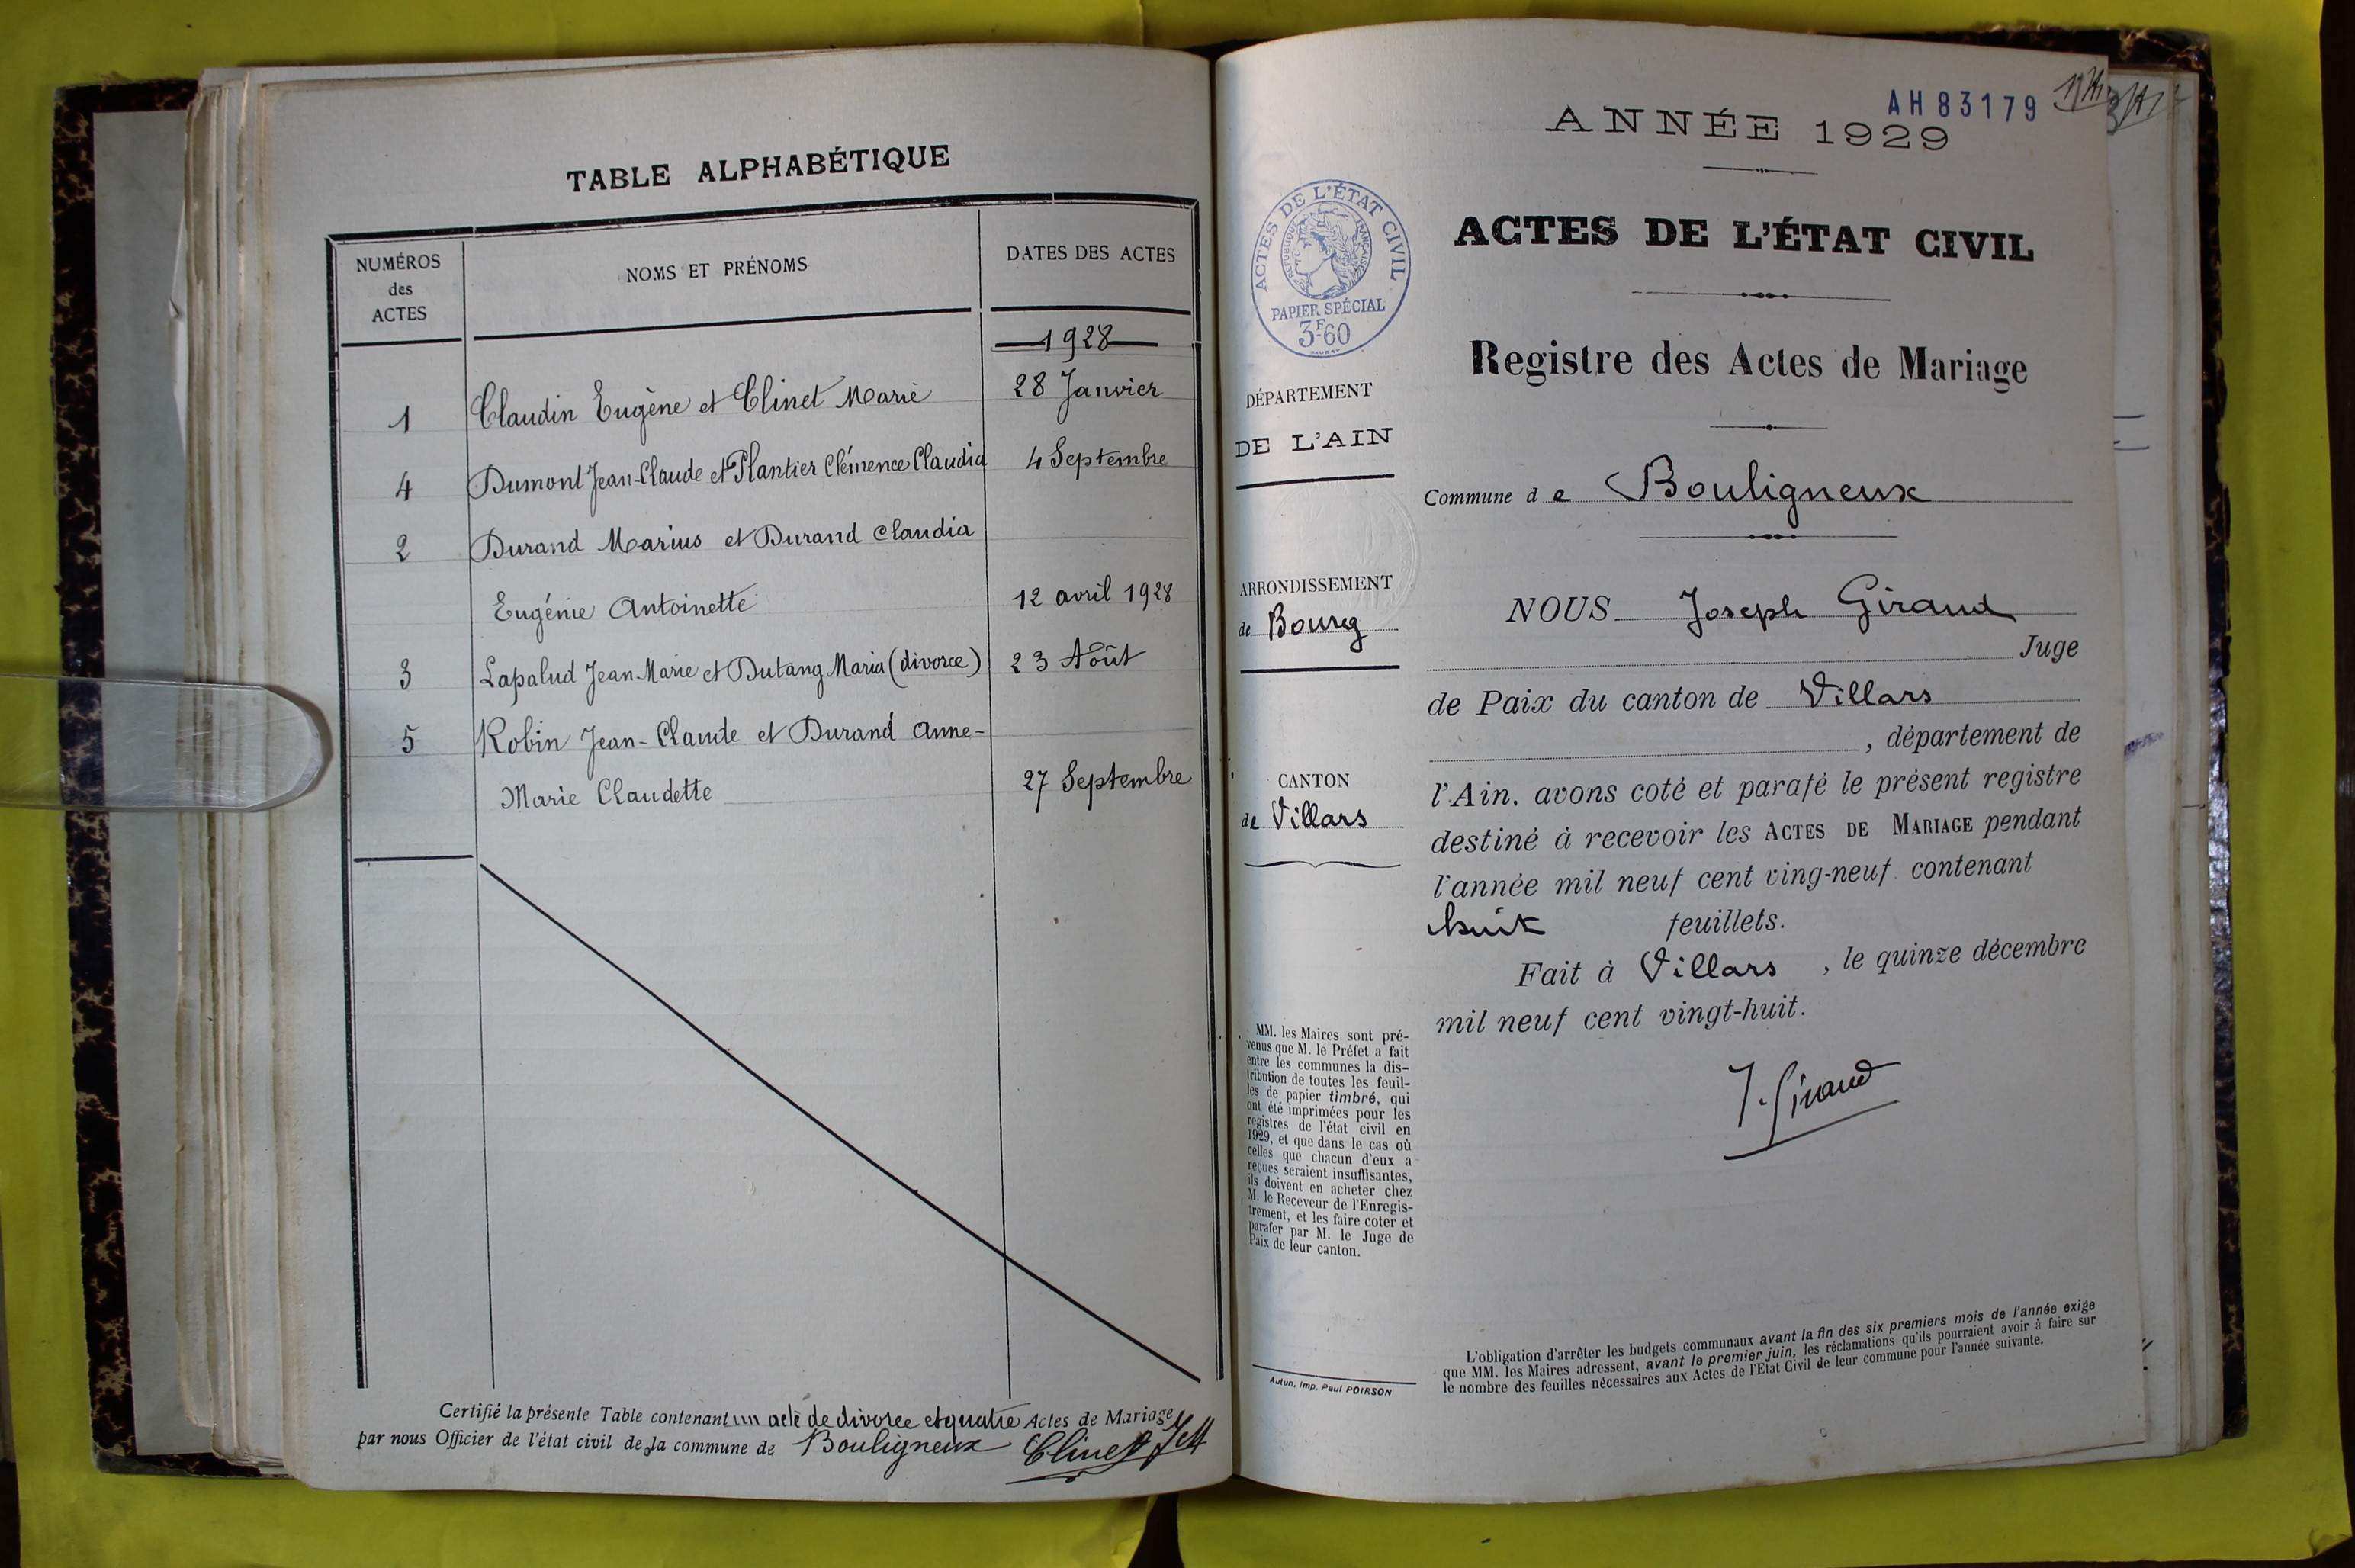 TABLE ALPHABÉTIQUE
NUMÉROS
des
ACTES
NOMS ET PRÉNOMS
DATES DES ACTES
1928
1 Claudin Eugène et Clinet Marie 28 Janvier
4 Dumont Jean-Claude et Plantier Clémence Claudia 4 Septembre
2 Durand Marius et Durand Claudia
Eugénie Antoinette 12 avril 1928
3 Lapalud Jean-Marie et Dutang Maria (divorce) 23 Août
5 Robin Jean-Claude et Durand Anne-
Marie Claudette 27 Septembre
Certifié la présente Table contenant un acte de divorce et quatre Actes de Mariage
par nous Officier de l'état civil de la commune de Bouligneux Clinet
AH 83179
ANNÉE 1929
ACTES DE L'ÉTAT CIVIL
RÉPUBLIQUE FRANÇAISE
PAPIER SPÉCIAL
3F60
ACTES DE L'ÉTAT CIVIL
Registre des Actes de Mariage
DÉPARTEMENT
DE L'AIN
Commune de Bouligneux
ARRONDISSEMENT
de Bourg
CANTON
de Villars
NOUS Joseph Giraud
Juge
de Paix du canton de Villars
, département de
l'Ain, avons coté et parafé le présent registre
destiné à recevoir les ACTES DE MARIAGE pendant
l'année mil neuf cent ving-neuf contenant
huit feuillets.
Fait à Villars , le quinze décembre
mil neuf cent vingt-huit.
J. Giraud
MM. les Maires sont pré-
venus que M. le Préfet a fait
entre les communes la dis-
tribution de toutes les feuil-
les de papier timbré, qui
ont été imprimées pour les
registres de l'état civil en
1929, et que dans le cas où
celles que chacun d'eux a
reçues seraient insuffisantes,
ils doivent en acheter chez
M. le Receveur de l'Enregis-
trement, et les faire coter et
parafer par M. le Juge de
Paix de leur canton.
Autun, Imp. Paul POIRSON
L'obligation d'arrêter les budgets communaux avant la fin des six premiers mois de l'année exige
que MM. les Maires adressent, avant le premier juin, les réclamations qu'ils pourraient avoir à faire sur
le nombre des feuilles nécessaires aux Actes de l'Etat Civil de leur commune pour l'année suivante.